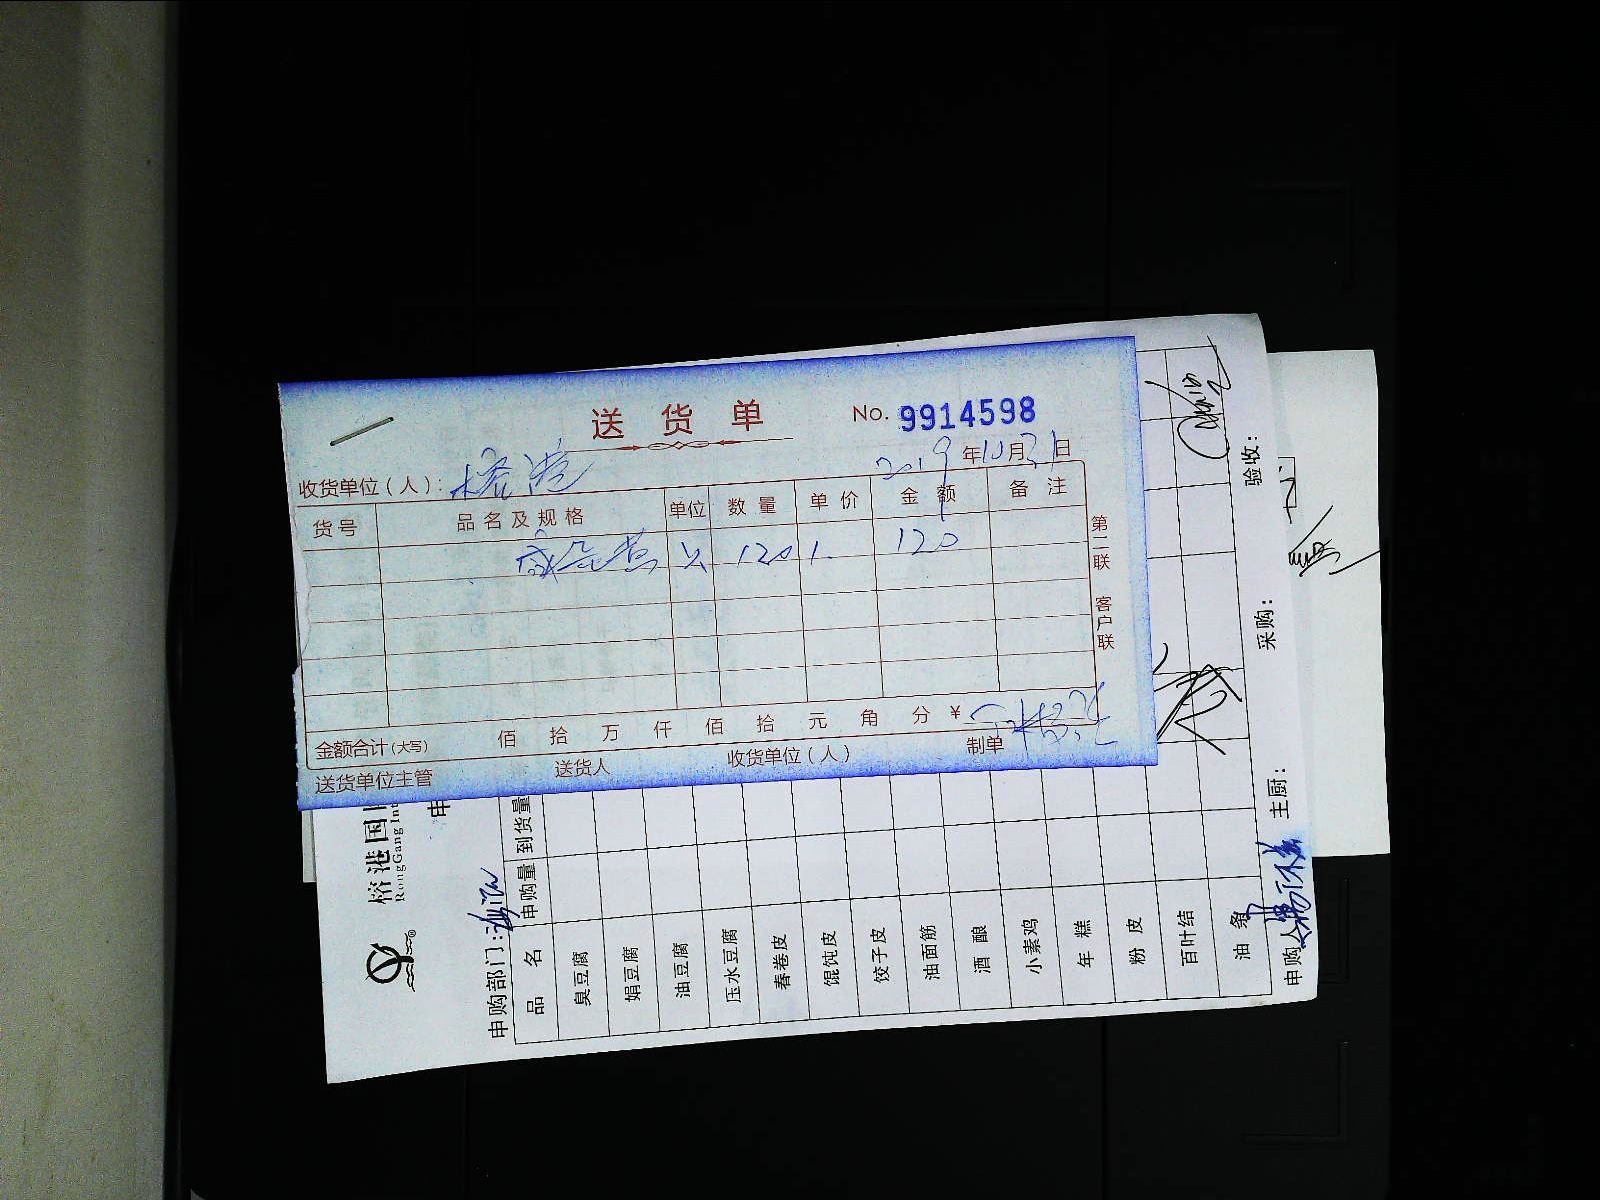 送货单
No. 9914598
2019年10月31日
收货单位(人): 榕港
货号 品名及规格 单位 数量 单价 金额 备注
120 1. 120
第二联 客户联
金额合计(大写) 佰 拾 万 仟 佰 拾 元 角 分 ¥
送货单位主管 送货人 收货单位(人) 制单
榕港国
RongGang Int
申
申购部门:
品名 申购量 到货量
臭豆腐
娟豆腐
油豆腐
压水豆腐
春卷皮
馄饨皮
饺子皮
油面筋
酒酿
小素鸡
年糕
粉皮
百叶结
油条
申购人 主厨: 采购: 验收: